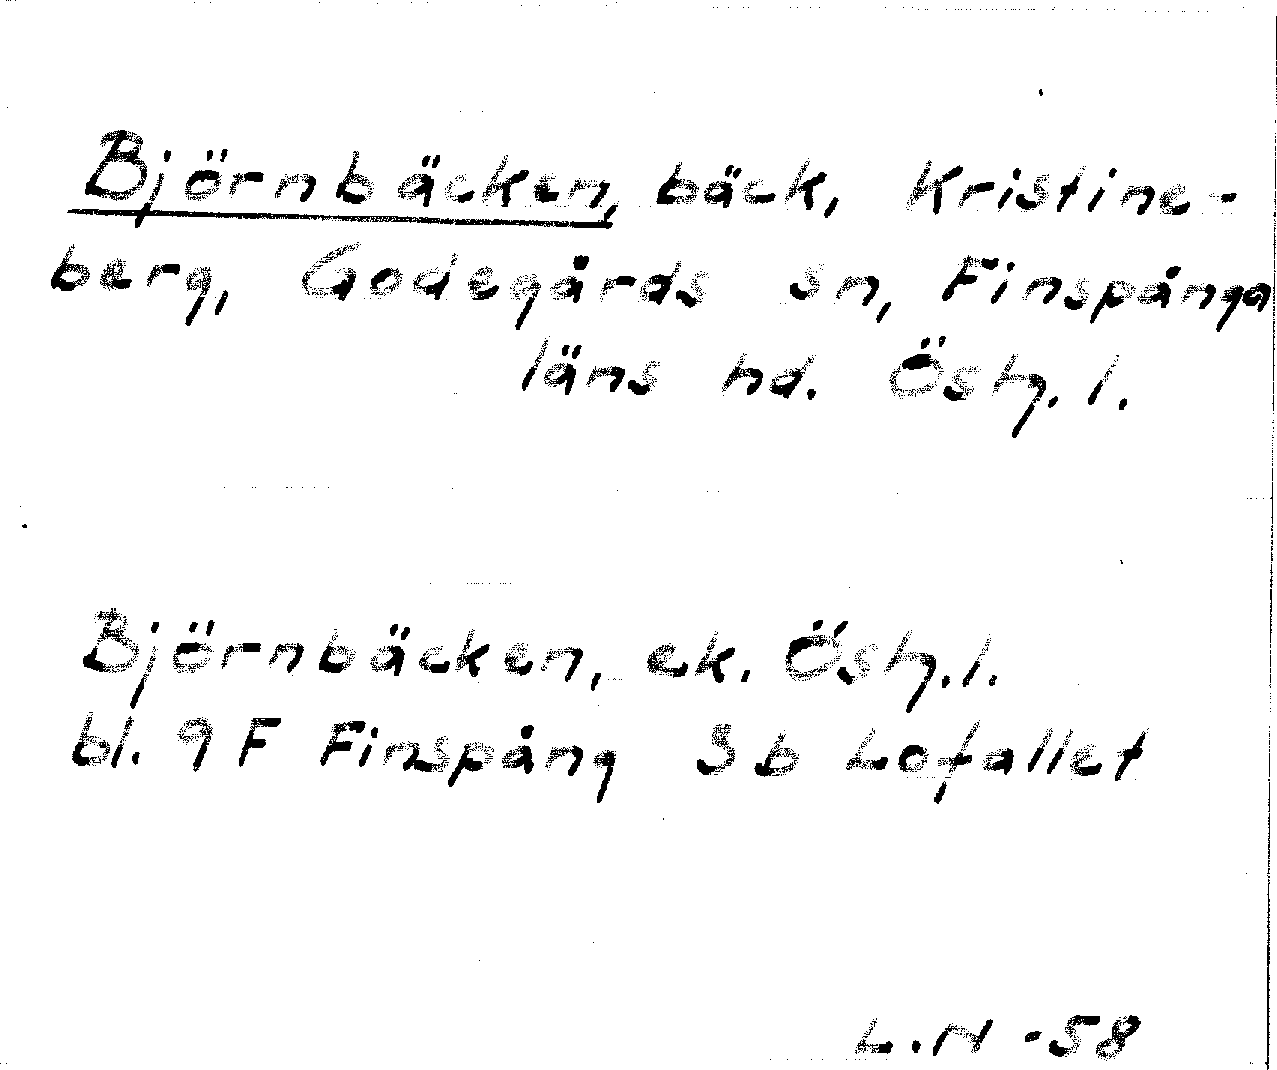 Björnbäcken, bäck, Kristine-
berg, Godegårds sn, Finspånga
läns hd. Östg. l.
Björnbäcken, ek. Östg. l.
bl. 9 F Finspång Sb Lofallet
L.N -58